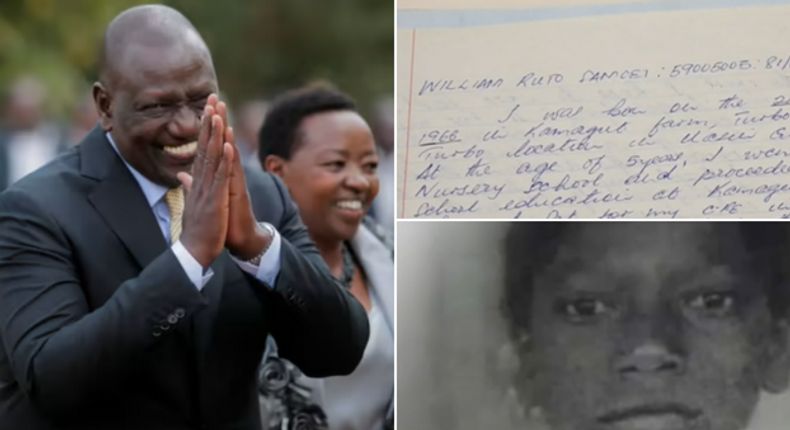 WILLIAM RUTO SAMOEI : 59005005: 81/
I was born on the 2
1966 in Kamagut farm, Turbo
Turbo location in Uasin G
At the age of 5 years, I wen
Nursery School and proceede
School education at Kamagu
for my CPE in